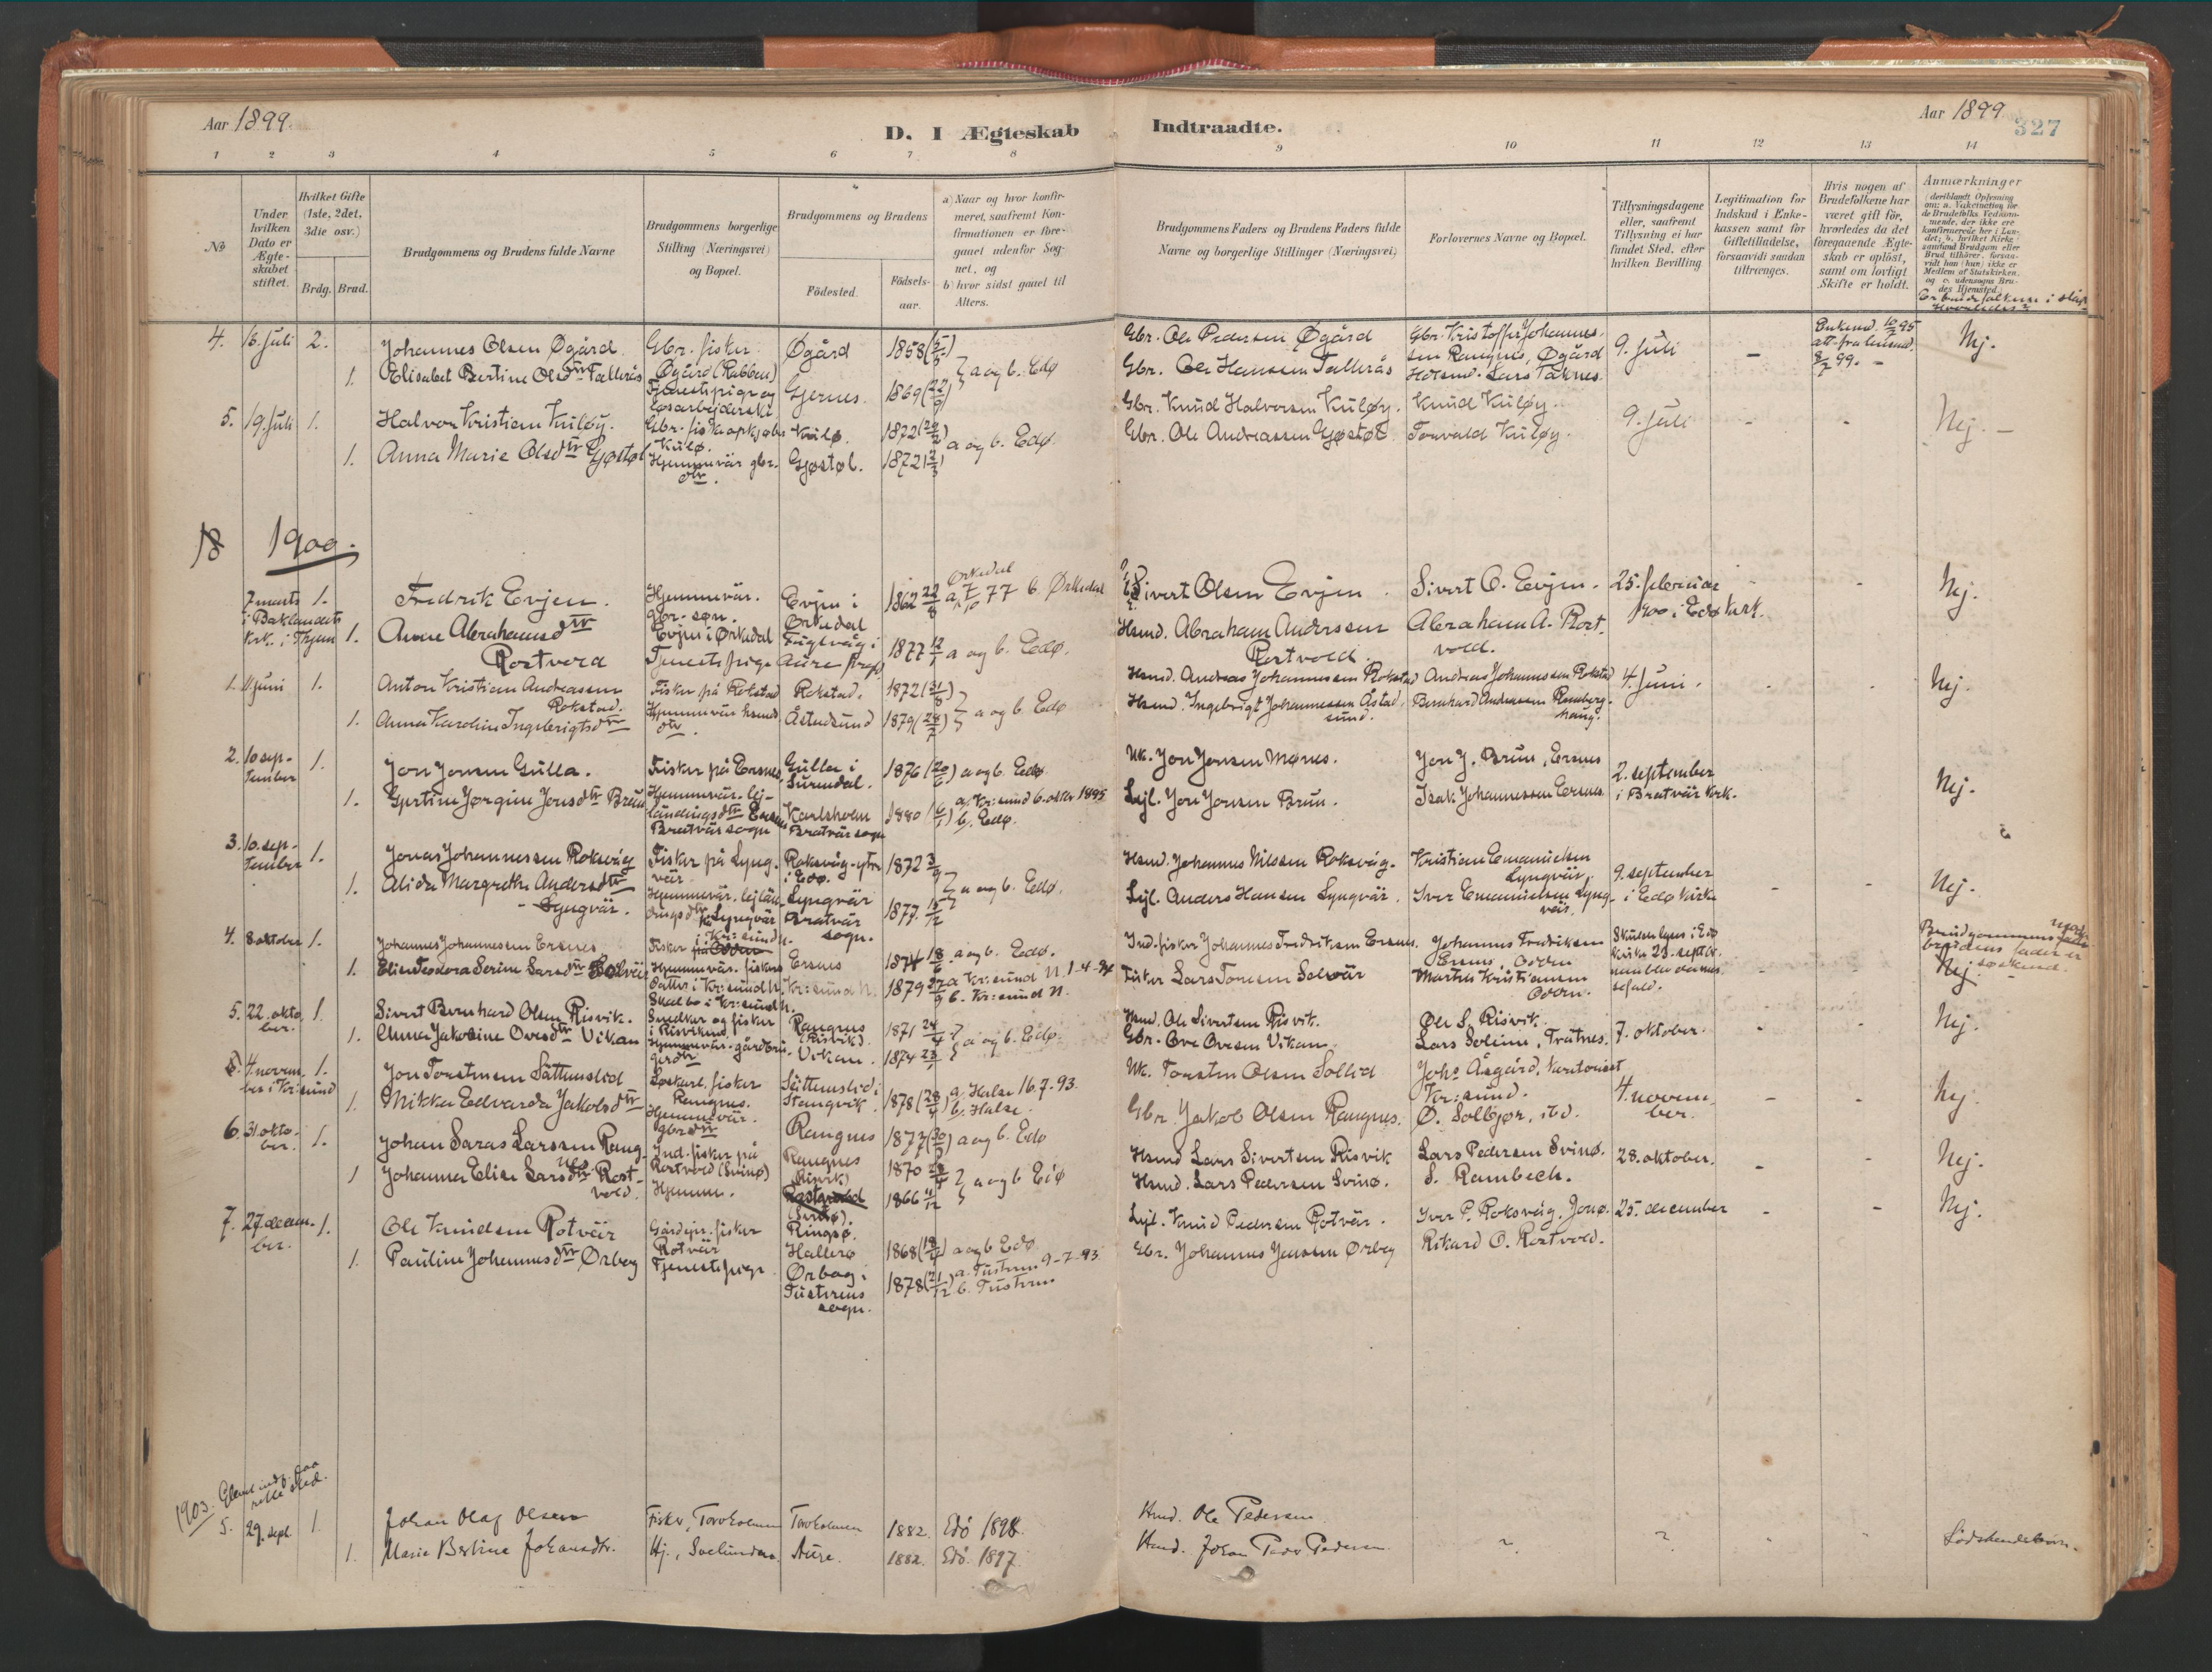 Aar 1899.
D. I Ægteskab
Indtraadte.
Aar 1899.
327
1 2 3 4 5 6 7 8 9 10 11 12 13 14
No
Under hvilken Dato er Ægteskabet stiftet.
Hvilket Gifte (1ste, 2det, 3die osv.)
Brdg. Brud.
Brudgommens og Brudens fulde Navne
Brudgommens borgerlige Stilling (Næringsvei) og Bopæl.
Brudgommens og Brudens
Födested.
Födsels-aar.
a) Naar og hvor konfirmeret, saafremt Konfirmationen er foregaaet udenfor Sognet, og
b) hvor sidst gaaet til Alters.
Brudgommens Faders og Brudens Faders fulde Navne og borgerlige Stillinger (Næringsvei)
Forlovernes Navne og Bopæl.
Tillysningsdagene eller, saafremt Tillysning ei har fundet Sted, efter hvilken Bevilling
Legitimation for Indskud i Enkekassen samt for Giftetilladelse, forsaavidt saadan tiltrænges.
Hvis nogen af Brudefolkene har været gift för, hvorledes da det foregaaende Ægteskab er oplöst, samt om lovligt Skifte er holdt.
Anmærkninger
4. 16. juli 2. Johannes Olsen Øgård. Gbr. fisker Øgård (Rabben) Øgård 1858 Gbr. Ole Pedersen Øgård Gbr. Kristoffer Johannessen Rangnes, Øgård 9. juli - Enkemd. Nej.
1. Elisabet Bertine Olsdtr Tallerås Tjenestepige og løsarbejderske Gjernes. 1869 a og b. Edø Gbr. Ole Hanssen Tallerås Lars Taknes.
5. 19. juli 1. Halvor Kristian Kuløy. Gbr. fiskeopkjøber Kulø. Kulø. 1872 Gbr. Knud Halvorsen Kuløy. Knud Kuløy. 9. juli - - Nej. -
1. Anna Marie Olsdtr Gjøstøl Hjemmevär. gbr. dtr. Gjøstøl. 1872 a og b. Edø. Gbr. Ole Andreassen Gjøstøl Torvald Kuløy.
1900.
7 marts i Baklandets kirk. i Thjem 1. Fredrik Evjen. Hjemmevär. gbr. søn. Evjen i Ørkedal Evjen i Ørkedal 1862 Orkedal 77 b. Ørkedal Sivert Olsen Evjen. Sivert O. Evjen. 25. februar 1900 i Edø kirk. Nej.
1. Anne Abrahamsdtr Rostvold Tjenestepige Fuglevåg i Aure 1877 a og b. Edø. Hsmd. Abraham Anderssen Rostvold. Abraham A. Rostvold.
1. 11 juni 1. Anton Kristian Andreassen Rokstad. Fisker på Rokstad Rokstad. 1872 Hsmd. Andreas Johannessen Rokstad Andreas Johannessen Rokstad 4. juni. Nej.
1. Anna Karoline Ingebrigtsdtr Hjemmevär. hsmds dtr. Åstadsund 1879 a og b. Edø Hsmd. Ingebrigt Johannessen Åstadsund. Bernhard Andreassen
2. 10 september 1. Jon Jonsen Gulla. Fisker på Ersnes, Gulla i Surendal. 1876 a og b. Edø Uk. Jon Jonsen Mønes. Jon J. Brun, Ersnes 2. september i Bratvär kirk. Nej.
1. Gjertine Jørgine Jonsdtr Brun Hjemmevär. lejländingsdtr Ersnes Bratvär sogn Karlsholm Bratvär sogn 1880 a. Kr:sund 6. oktbr 1895 b. Edø. Lejl. Jon Jonsen Brun. Isak Johannessen Ersnes
3. 10. september 1. Jonas Johannessen Roksvåg Fisker på Lyngvär Roksvåg-ytre i Edø. 1872 Hsmd. Johannes Nilssen Roksvåg. Kristian Emanuelsen Lyngvär. 9. september i Edø kirke - - Nej.
1. Alida Margrethe Andersdtr Lyngvär. Hjemmevär. lejländingsdtr på Lyngvär Lyngvär Bratvär sogn. 1877 a og b. Edø. Lejl. Anders Hansen Lyngvär. Iver Emanuelsen Lyngvär.
4. 8 oktober 1. Johannes Johannessen Ersnes. Fisker i Kr:sund N. Ersnes 1874 a og b. Edø. Ind. fisker Johannes Fredriksen Ersnes. Johannes Fredriksen Ersnes, Odden
1. Elise Teodora Serine Larsdtr Solvär Hjemmevär. fiskers datter i Kr:sund N. Skal bo i Kr:sund N. Kr:sund N. 1879 a Kr:sund N. 1-4-94 b. Kr:sund N. Fisker Lars Tonesen Solvär Martin Kristiansen Odden. - - Nej
5. 22. oktober. 1. Sivert Bernhard Olsen Risvik. Snedker og fisker i Risviksund Rangnes (Risvik). 1871 Hsmd. Ole Sivertsen Risvik. Ole S. Risvik. 7. oktober. - - Nej.
1. Anna Jakobine Ovesdtr Vikan Hjemmevär. Vikan. 1874 a og b. Edø. Gbr. Ove Ovesen Vikan. Lars Soleim, Trätnes.
4. november i Kr:sund 1. Jon Torstensen Sättemslid Løskarl, fisker Rangnes. Sättemslid i Stangvik. 1878 a. Halse 16.7.93. b. Halse. Uk. Torsten Olsen Sollid Johs Åsgård, kontorist Kr:sund. 4. november. - - Nej.
1. Mikka Edvarda Jakobsdtr Hjemmevär. gbrdtr Rangnes 1877 a og b. Edø Gbr. Jakob Olsen Rangnes. O. Solbjør, ibd.
6. 31. oktober. 1. Johan Saras Larssen Rangnes Ind. fisker på Rostvold (Svinø) Rangnes (Risvik) 1870 Hsmd Lars Sivertsen Risvik Lars Pedersen Svinø. 28. oktober. - Nej.
1 Johanna Elise Larsdtr Rostvold. Hjemme. (Svinø). 1866 a og b Edø Hsmd. Lars Pedersen Svinø. S. Rambech.
7. 27. december. 1. Ole Knudsen Rotvär Gårdejer. fisker Rotvär Ringsø. Hallerø 1868 a og b Edø Lejl. Knud Pedersen Rotvär. Iver P. Roksvåg, Jonø. 25. december - - Nej.
1. Pauline Johannesdtr Ørbog Tjenestepige Ørbog i Tusterens sogn. 1878 a. Tusteren 9-7-93. b. Tusteren Gbr. Johannes Jenssen Ørbog Rikard O. Rostvold.
1903. Glemt indf. paa rette sted.
5. 29. sept. 1. Johan Olaf Olsen Fisker, Torvholmen Torvholmen 1882. Edö 1898. Hmd. Ole Pedersen
1. Marie Bertine Johansdtr. Hj., Aure. 1882. Edö. 1897. Hmd. Johan Peder Pedersen Sødskendebørn.